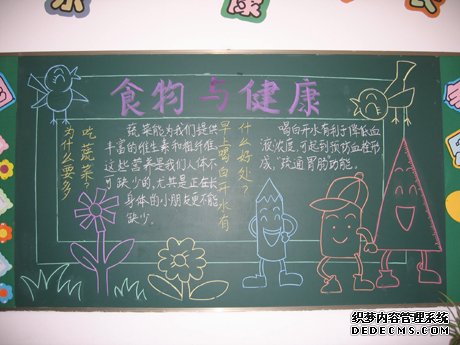 食物与健康
为什么要多
吃蔬菜?
蔬菜能为我们提供
丰富的维生素和粗纤维,
这些营养是我们人体不
可缺少的,尤其是正在长
身体的小朋友更不能
缺少。
早上喝白开水有
什么好处?
喝白开水有利于降低血
液浓度,可起到预防血栓形
成,疏通胃肠功能。
织梦内容管理系统
DEDECMS.COM